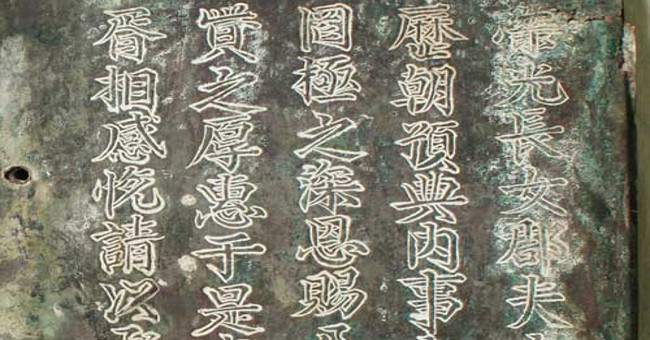 光長女郡夫
歷朝預典内事
罔極之深恩賜
之厚惠于是
胥相感悦請以